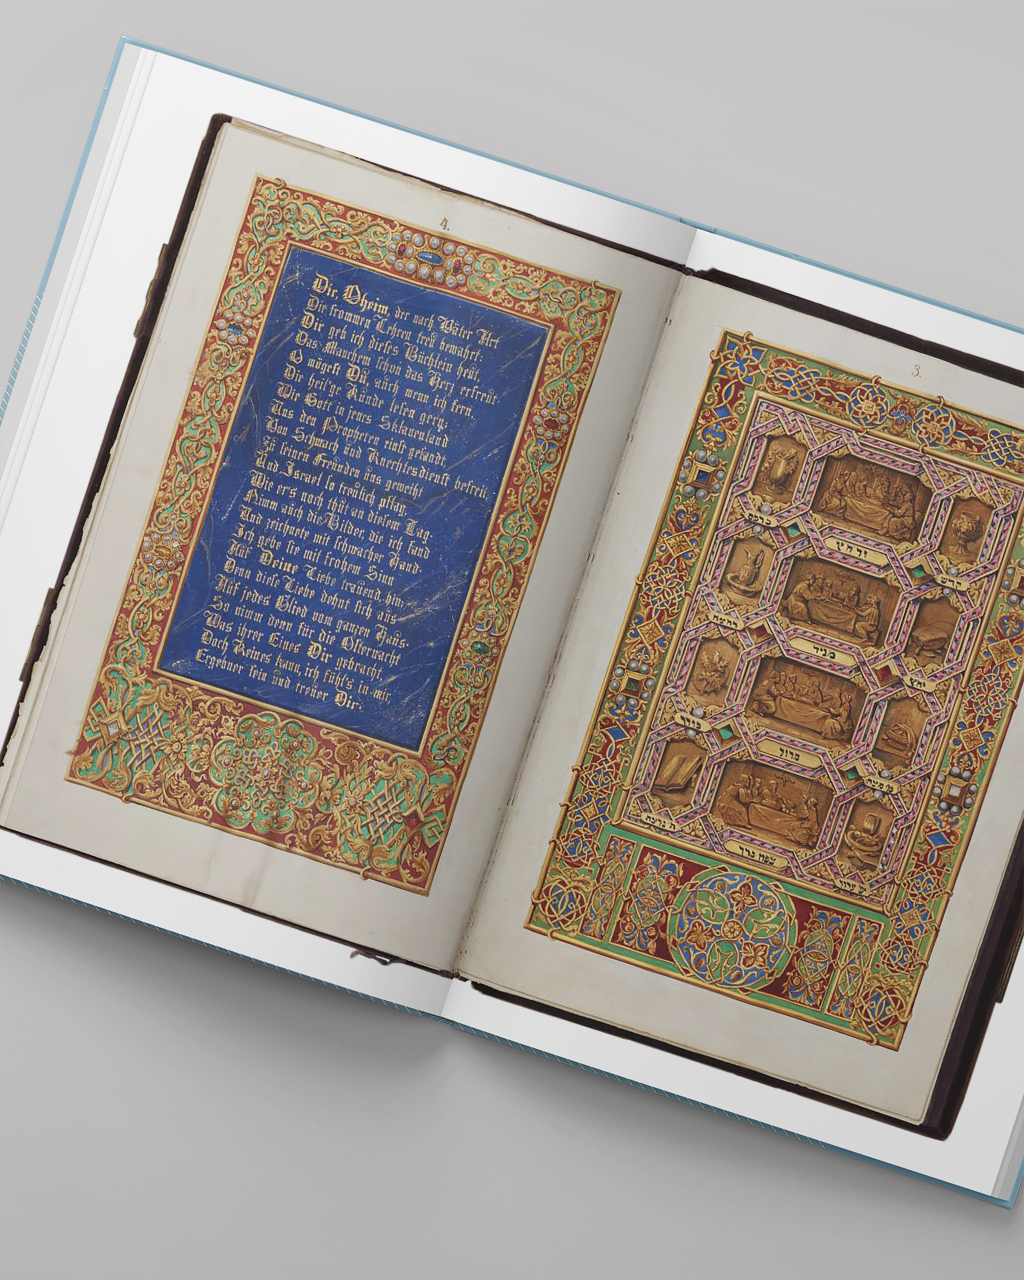 4.
Dir, Oheim, der nach Väter Art
Die frommen Lehren treu bewahrt:
Dir geb ich dieses Büchlein heut,
Das Manchem schon das Herz erfreut.
O mögest Du, auch wenn ich fern,
Die heil'ge Kunde lesen gern:
Wie Gott in jenes Sklavenland
Uns den Propheten einst gesandt,
Von Schmach und Knechtesdienst befreit,
Zu seinen Freunden uns geweiht
Und Israel so treulich pflag,
Wie er's noch thut an diesem Tag.
Nimm auch die Bilder, die ich fand
Und zeichnete mit schwacher Hand.
Ich gebe sie mit frohem Sinn
Auf Deine Liebe trauend hin;
Denn diese Liebe dehnt sich aus
Auf jedes Glied vom ganzen Haus.
So nimm denn für die Osterwacht
Was ihrer Eines Dir gebracht,
Doch Keines kann, ich fühl's in mir,
Ergebner sein und treuer Dir.
3.
קדש ורחץ כרפס
יחץ מגיד רחצה
מרור כורך
צפון ברך